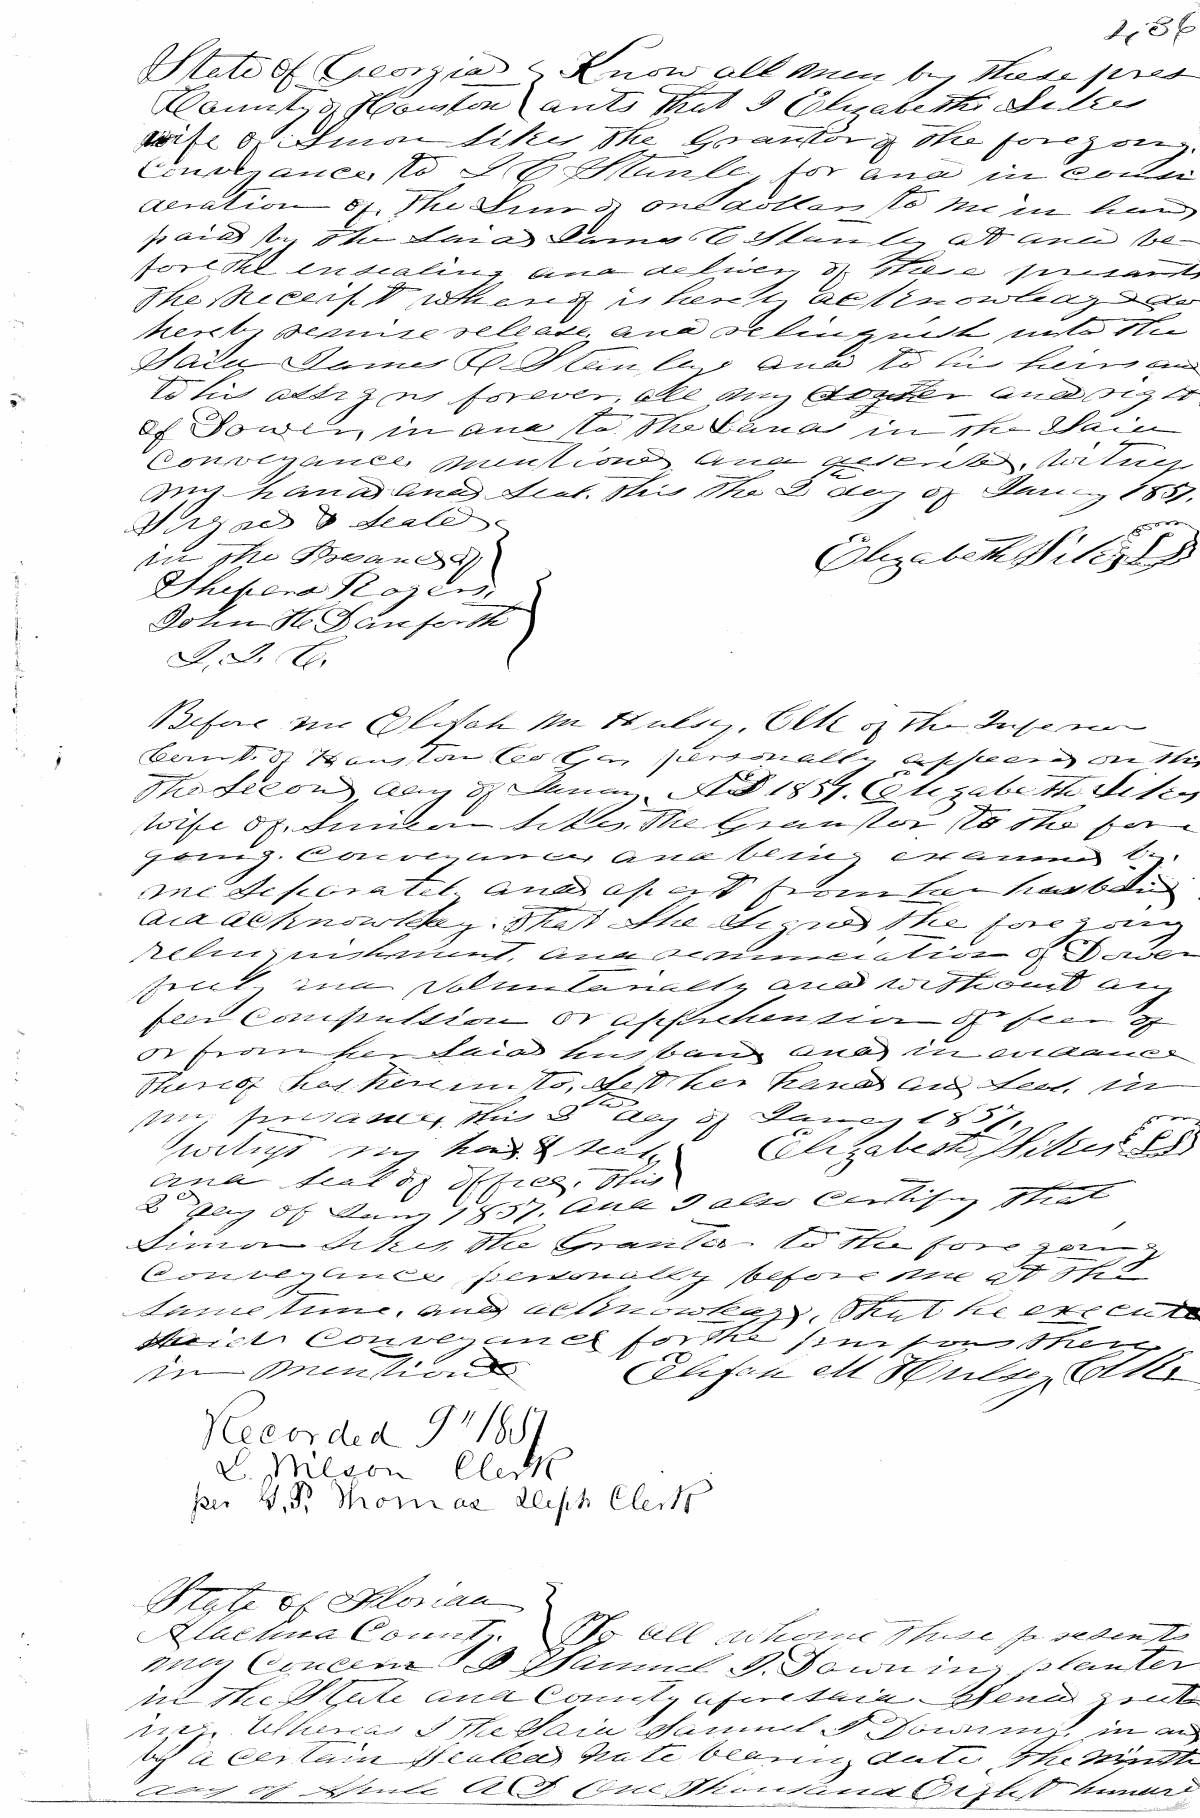 436
State of Georgia } Know all men by these pres
County of Houston } ents that I Elizabeth Sikes
wife of Simon Sikes the Grantor of the foregoing
Conveyance to J C Stanley for and in consi
deration of the Sum of one dollars to me in hand
paid by the Said James C Stanley at and be-
fore the ensealing and delivery of these presants
the Receipt whereof is hereby acknowledged do
hereby remise release and relinquish unto the
Said James C Stanley and to his heirs and
to his assigns forever, all my dower and right
of Dower, in and to the Lands in the Said
Conveyance mentioned and described, Witness
my hand and Seal. this the 2d day of Januy 1857.
Signed & Sealed
in the Presance of
Elizabeth Sikes LS
Shepard Rogers,
John H Danforth
J. I. C.
Before me Elijah M Hulsey, Clk of the Inferior
Court of Houston Co Ga, personally appeared on this
the Second day of January AD 1857. Elizabeth Sikes
wife of Simeon Sikes, the Grantor to the fore
going Conveyance and being examined by
me Seperately and apart from her husband
did acknowledg. that She Signed the foregoing
relinquishment, and renunciation of Dower
freely and voluntarially and without any
feer Compulsion or apprehension of feer of
or from her Said husband and in evidance
thereof has hereunto, Set her hand and Seal, in
my presance, this 2d day of Januy 1857.
Witness my hand & Seal,
Elizabeth Sikes LS
and Seal of office, this
2d day of Jany 1857. And I also certify that
Simon Sikes, the Grantor to the foregoing
Conveyance personally before me at the
Same time, and acknowledged, that he executed
Conveyance for the purposes there
in mentioned Elijah M Hulsey, Clk
Recorded 9" 1857
L. Wilson Clerk
per G. P. Thomas Deph Clerk
State of Florida
Alachua County. } To all whome these presents
may Concern I Samuel J. Downing planter
in the State and County aforesaid Send greet
ing. Whereas I the Said Samuel J Downing, in and
by a certain Sealed Note bearing date, the Ninth
day of Aprile AD One thousand Eight hundred